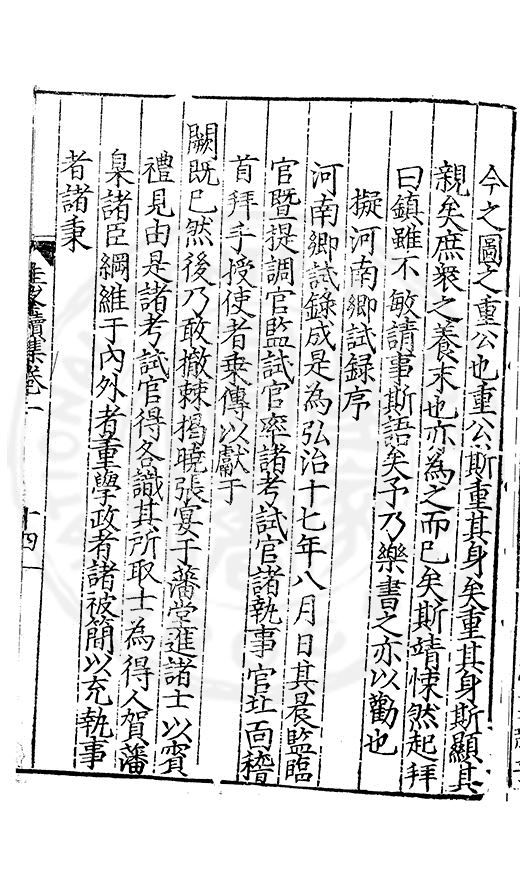 今之圖之重公也重公斯重其身矣重其身斯顯其
親矣庶衆之養末也亦為之而已矣斯靖悚然起拜
曰鎮雖不敏請事斯語矣予乃樂書之亦以勸也
擬河南鄉試録序
河南鄉試錄成是為弘治十七年八月日其晨監臨
官暨提調官監試官率諸考試官諸執事官北面稽
首拜手授使者乗傳以獻于
闕既已然後乃敢撤棘揭曉張宴于藩堂進諸士以賓
禮見由是諸考試官得各識其所取士為得人賀藩
臬諸臣綱維于內外者董學政者諸被簡以充執事
者諸秉
續集卷一
十四